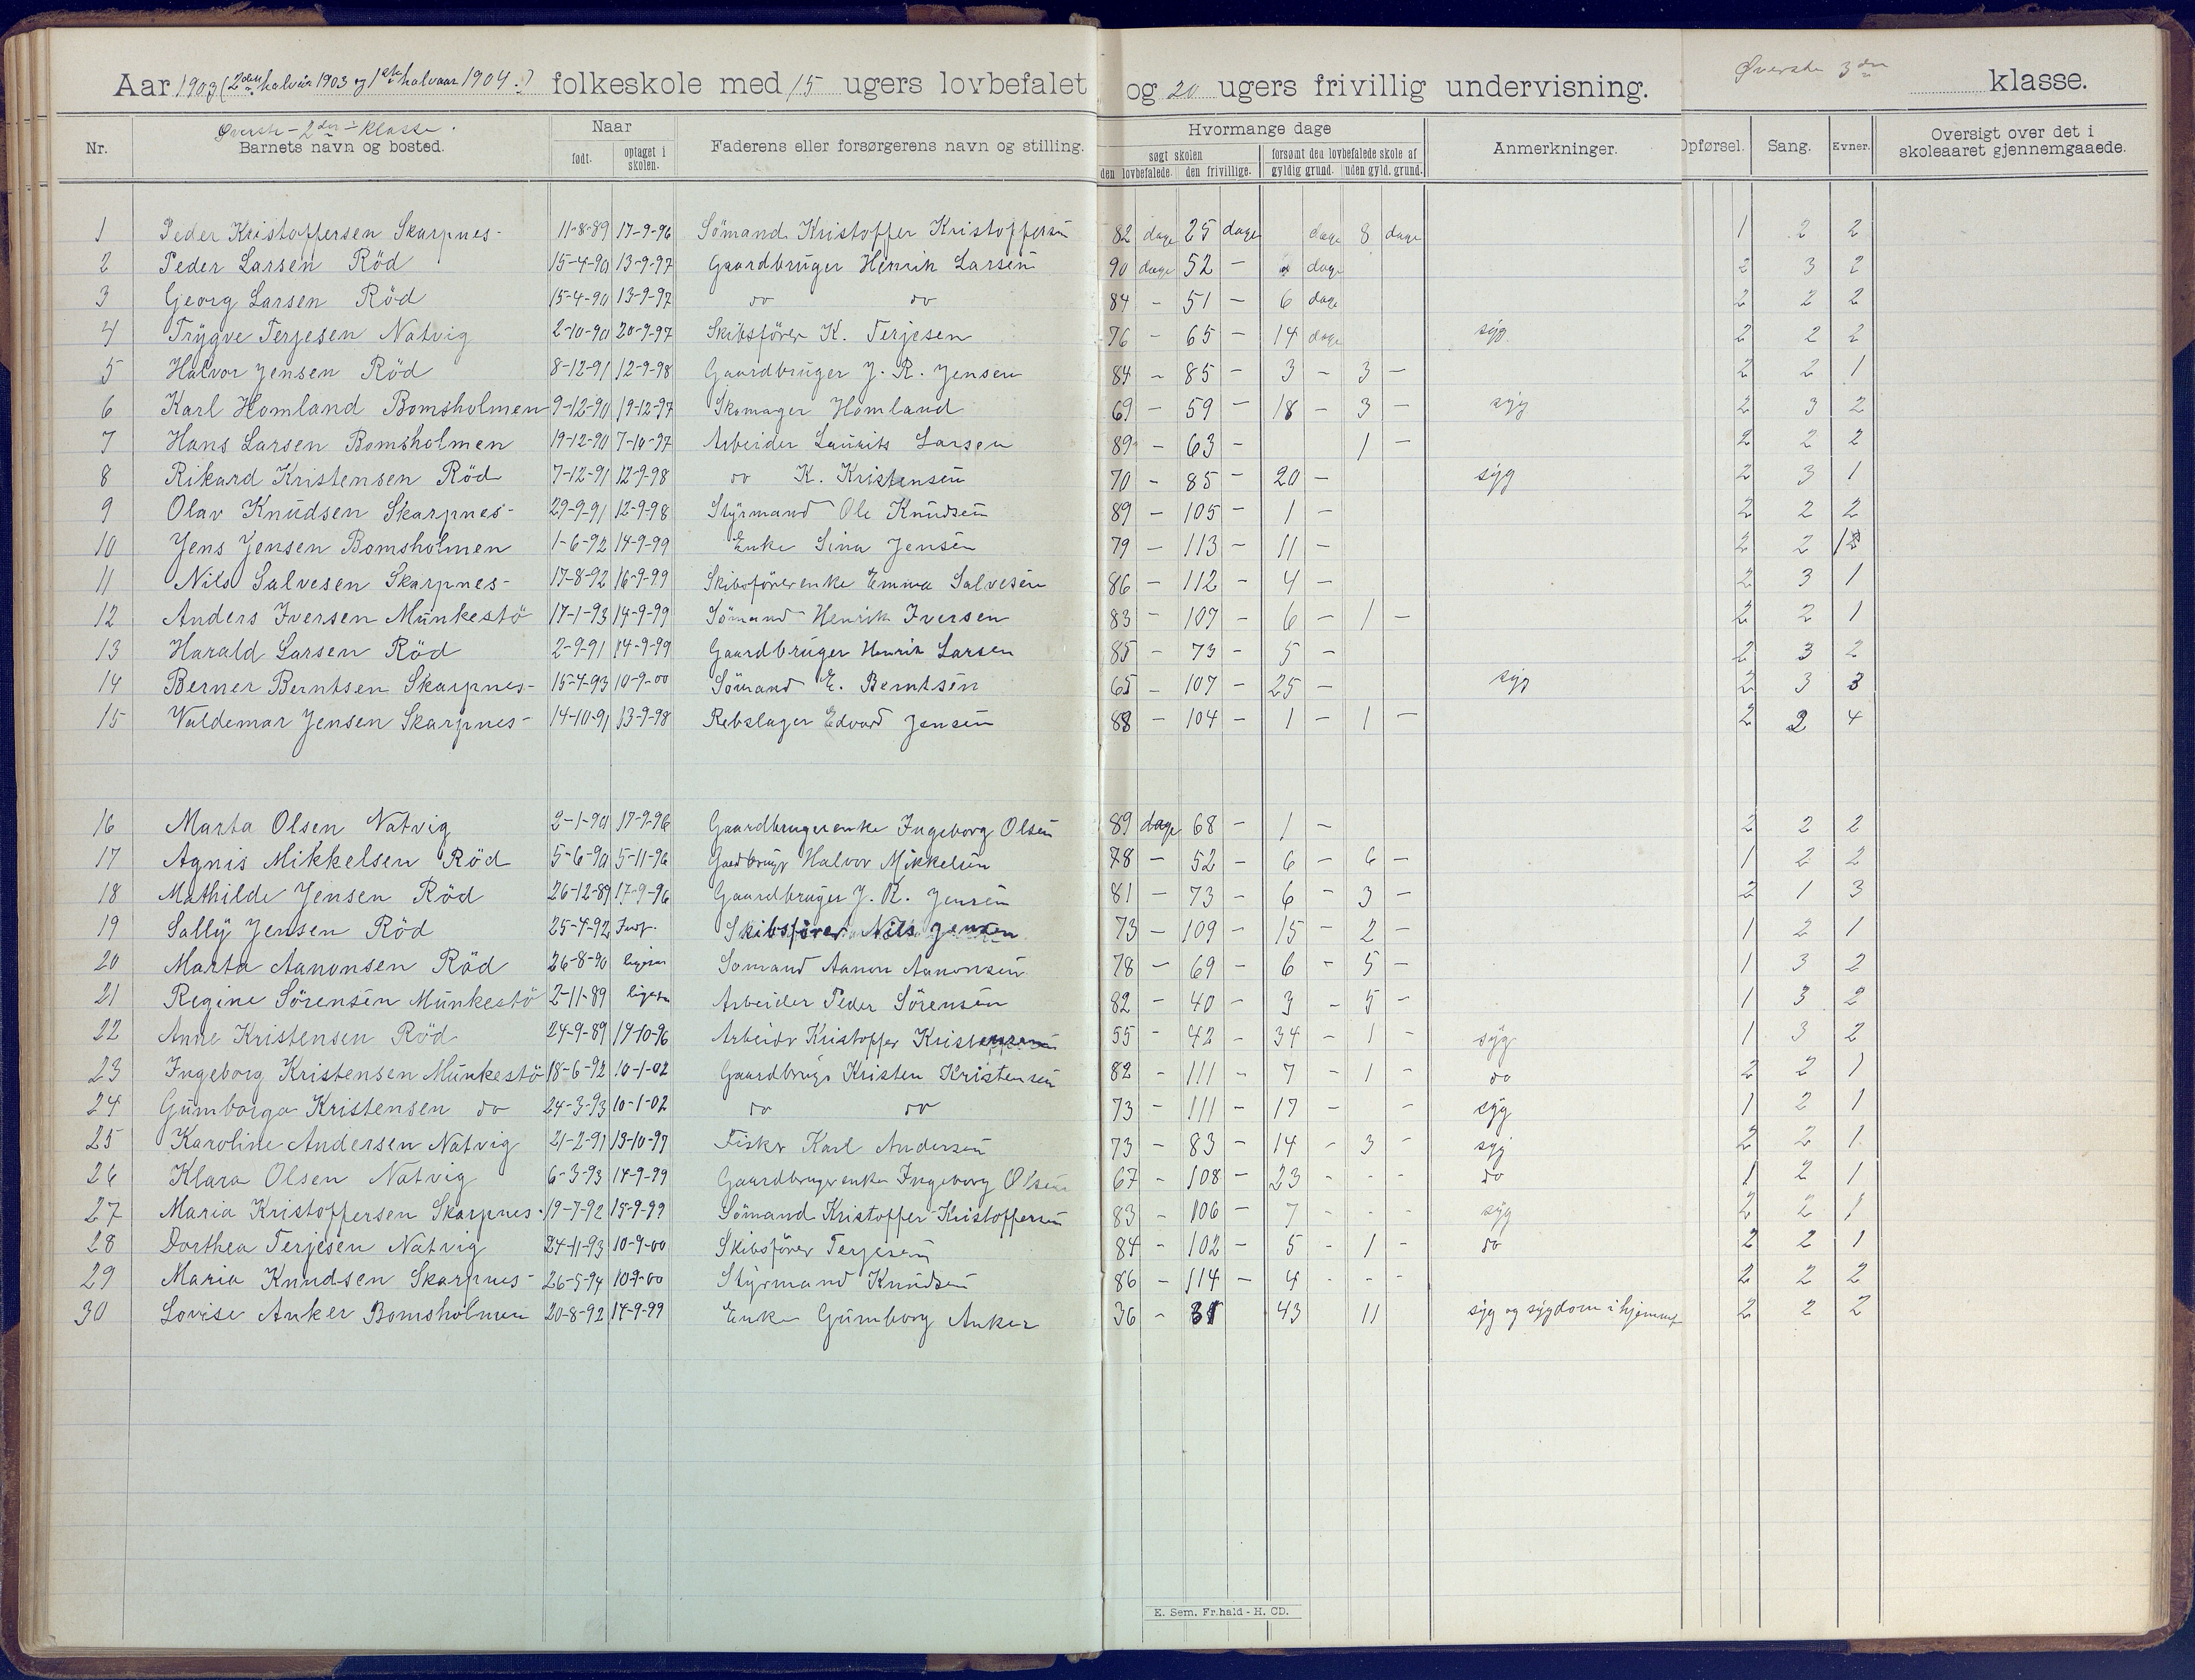 Aar 1903 (2den halvår 1903 og 1ste halvaar 1904.) folkeskole med 15 ugers lovbefalet og 20 ugers frivillig undervisning. Øverste 3die klasse.
Øverste - 2den - Klasse.
Nr. Barnets navn og bosted. Naar født. optaget i skolen. Faderens eller forsørgerens navn og stilling. Hvormange dage søgt skolen den lovbefalede. den frivillige. forsømt den lovbefalede skole af gyldig grund. uden gyld. grund. Anmerkninger. Opførsel. Sang. Evner. Oversigt over det i skoleaaret gjennemgaaede.
1 Peder Kristoffersen Skarpnes- 11-8-89 17-9-96 Sömand Kristoffer Kristoffersen 82 dage 25 dage dage 8 dage 1 2 2
2 Peder Larsen Röd 15-4-90 13-9-97 Gaardbruger Henrik Larsen 90 dage 52 - dage 2 3 2
3 Georg Larsen Röd 15-4-90 13-9-97 do do 84 - 51 - 6 dage 2 2 2
4 Trygve Terjesen Natvig 2-10-90 20-9-97 Skibsförer K. Terjesen 76 - 65 - 14 dage syg 2 2 2
5 Halvor Jensen Röd 8-12-91 12-9-98 Gaardbruger J. R. Jensen 84 - 85 - 3 - 3 - 2 2 1
6 Karl Homland Bomsholmen 9-12-90 19-12-97 Skomager Homland 69 - 59 - 18 - 3 - syg 2 3 2
7 Hans Larsen Bomsholmen 19-12-90 7-10-97 Arbeider Laurits Larsen 89 - 63 - 1 - 2 2 2
8 Rikard Kristensen Röd 7-12-91 12-9-98 do K. Kristensen 70 - 85 - 20 - syg 2 3 1
9 Olav Knudsen Skarpnes- 29-9-91 12-9-98 Styrmand Ole Knudsen 89 - 105 - 1 - 2 2 2
10 Jens Jensen Bomsholmen 1-6-92 14-9-99 Enke Sina Jensen 79 - 113 - 11 - 2 2
11 Nils Salvesen Skarpnes- 17-8-92 16-9-99 Skibsförerenke Emma Salvesen 86 - 112 - 4 - 2 3 1
12 Anders Iversen Munkestö 17-1-93 14-9-99 Sömand Henrik Iversen 83 - 107 - 6 - 1 - 2 2 1
13 Harald Larsen Röd 2-9-91 14-9-99 Gaardbruger Henrik Larsen 85 - 73 - 5 - 2 3 2
14 Berner Berntsen Skarpnes- 15-4-93 10-9-00 Sömand E. Berntsen 65 - 107 - 25 - syg 2 3 3
15 Valdemar Jensen Skarpnes- 14-10-91 13-9-98 Rebslager Edvard Jensen 88 - 104 - 1 - 1 - 2 2 4
16 Marta Olsen Natvig 2-1-90 17-9-96 Gaardbrugerenke Ingeborg Olsen 89 dage 68 - 1 - 2 2 2
17 Agnis Mikkelsen Röd 5-6-90 5-11-96 Gardbruger Halvor Mikkelsen 78 - 52 - 6 - 6 - 1 2 2
18 Mathilde Jensen Röd 26-12-89 17-9-96 Gaardbruger J. R. Jensen 81 - 73 - 6 - 3 - 2 1 3
19 Sally Jensen Röd 25-4-92 Skibsförer Nils Jensen 73 - 109 - 15 - 2 - 1 2 1
20 Marta Aanonsen Röd 26-8-90 Sömand Aanon Aanonsen 78 - 69 - 6 - 5 - 1 3 2
21 Regine Sörensen Munkestö 2-11-89 Arbeider Peder Sörensen 82 - 40 - 3 - 5 - 1 3 2
22 Anne Kristensen Röd 24-9-89 19-10-96 Arbeider Kristoffer Kristensen 55 - 42 - 34 - 1 - syg 1 3 2
23 Ingeborg Kristensen Munkestö 18-6-92 10-1-02 Gaardbruger Kristen Kristensen 82 - 111 - 7 - 1 - do 2 2 1
24 Gumborga Kristensen do 24-3-93 10-1-02 do do 73 - 111 - 17 - - syg 1 2 1
25 Karoline Andersen Natvig 21-2-91 13-10-97 Fisker Karl Andersen 73 - 83 - 14 - 3 - syg 2 2 1
26 Klara Olsen Natvig 6-3-93 14-9-99 Gaardbrugerenke Ingeborg Olsen 67 - 108 - 23 - - - do 1 2 1
27 Maria Kristoffersen Skarpnes- 19-7-92 15-9-99 Sömand Kristoffer Kristoffersen 83 - 106 - 7 - - - syg 2 2 1
28 Dorthea Terjesen Natvig 24-11-93 10-9-00 Skibsförer Terjesen 84 - 102 - 5 - 1 - do 2 2 1
29 Maria Knudsen Skarpnes- 26-5-94 10-9-00 Styrmand Knudsen 86 - 114 - 4 - - - 2 2 2
30 Lovise Anker Bomsholmen 20-8-92 14-9-99 Enke Gumborg Anker 36 - 31 - 43 11 syg og sygdom i hjemmet 2 2 2
E. Sem. Fr.hald - H. CD.